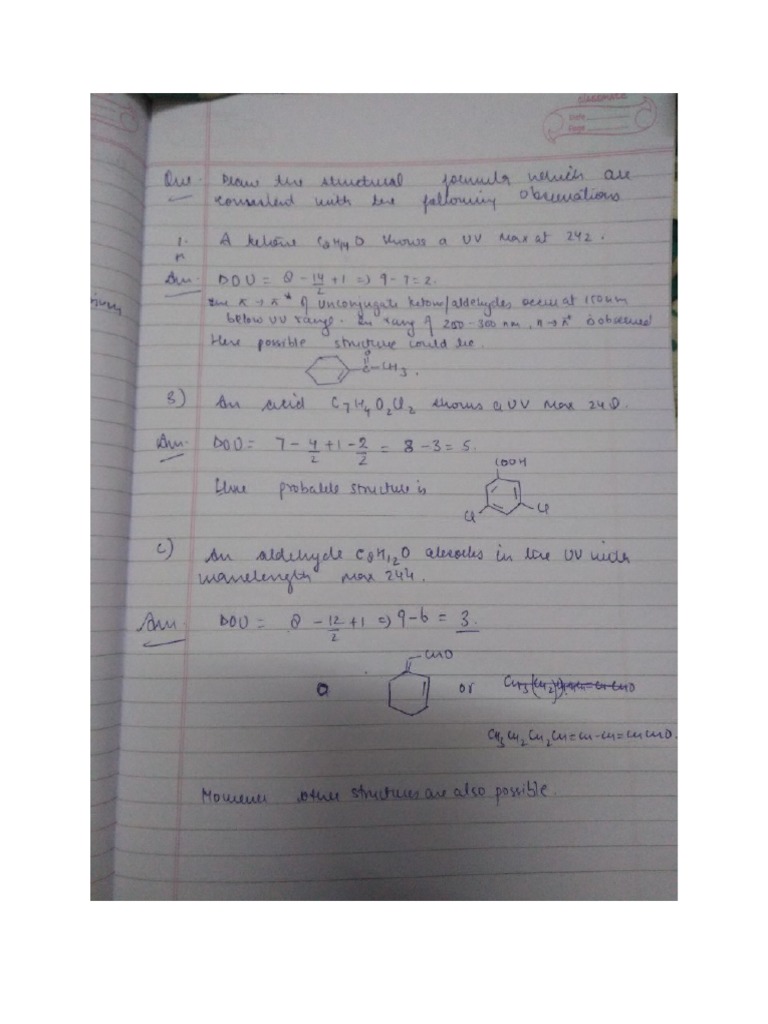 classmate
Date
Page
Que. Draw the structural formula which are
consistent with the following observations
1. A ketone C8H14O shows a UV max at 242.
Ans. DOU = 8 - 14/2 + 1 => 9 - 7 = 2.
The π → π* of unconjugate ketone/aldehydes occur at 150nm
below UV range. In rang of 200-300 nm, n → π* is observed
Here possible structure could be.
O
C-CH3.
B) An acid C7H4O2Cl2 shows a UV max 240.
Ans. DOU = 7 - 4/2 + 1 - 2/2 = 8 - 3 = 5.
COOH
Here probable structure is
Cl Cl
C) An aldehyde C8H12O absorbs in the UV with
wavelength max 244.
Ans. DOU = 8 - 12/2 + 1 => 9 - 6 = 3.
CHO
or
CH3CH2CH2CH=CH-CH=CHCHO.
However other structures are also possible.